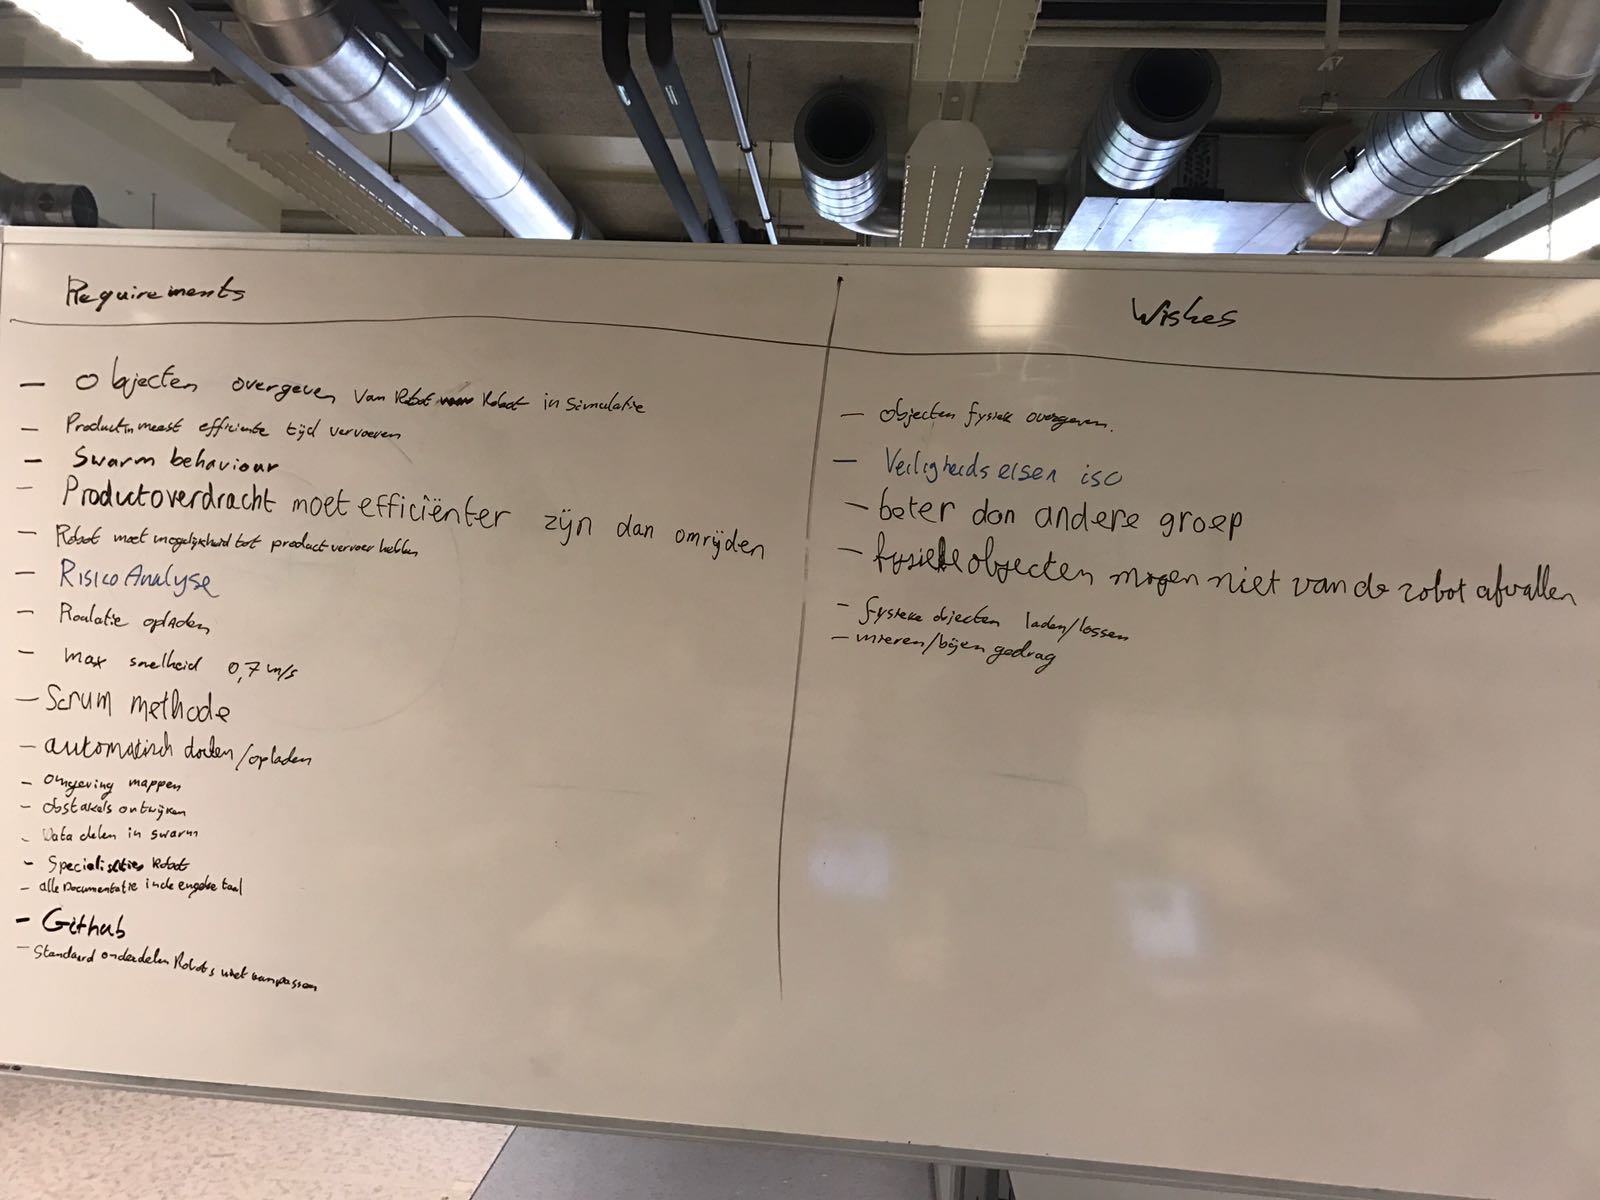 Requirements
- Objecten overgeven van Robot naar Robot in simulatie
- Product in meest efficiënte tijd vervoeren
- Swarm behaviour
- Productoverdracht moet efficiënter zijn dan omrijden
- Robot moet mogelijkheid tot product vervoer hebben
- Risico Analyse
- opladen
- max snelheid 0,7 m/s
- Scrum methode
- automatisch docken/opladen
- Omgeving mappen
- obstakels ontwijken
- Data delen in swarm
- Specialisaties Robot
- alle Documentatie in de engelse taal
- Github
- Standaard onderdelen Robots niet aanpassen
Wishes
- objecten fysiek overgeven.
- Veiligheidseisen iso
- beter dan andere groep
- fysieke objecten mogen niet van de robot afvallen
- fysieke objecten laden/lossen
- mieren/bijen gedrag